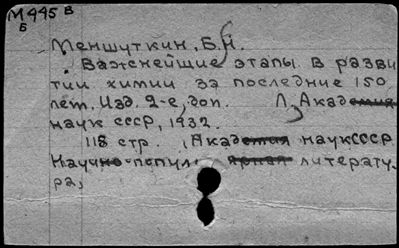 М445 В
Б
Меншуткин, Б.Н.
Важнейшие этапы в разви
тии химии за последние 150
лет. Изд. 2-е, доп. Л, Академия
наук СССР, 1932.
118 стр. (Академия наук СССР.
Научно-популярная литерату-
ра)